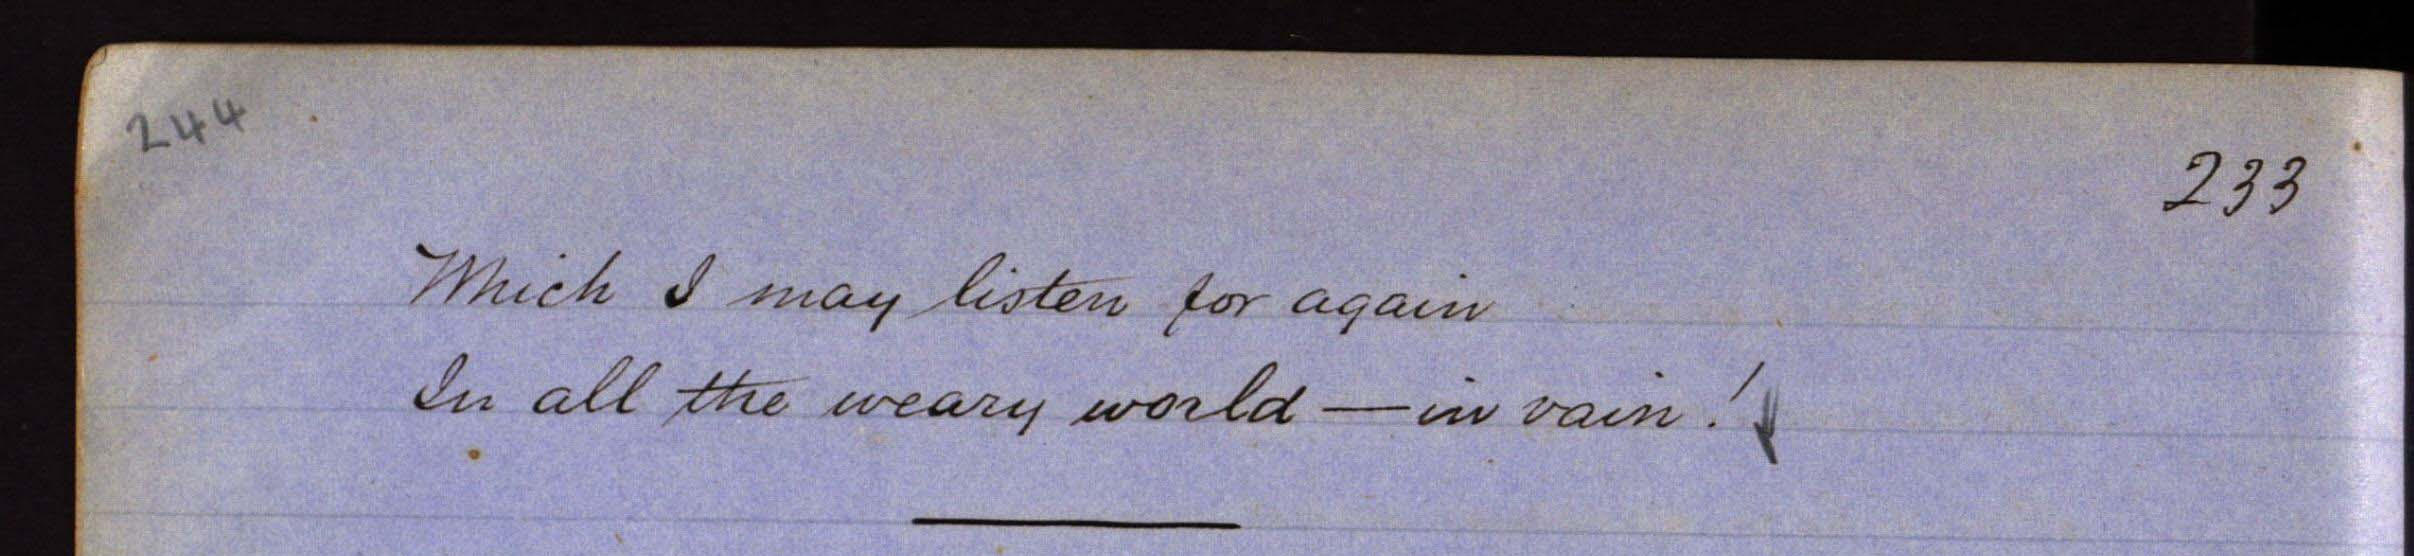 244
233
Which I may listen for again
In all the weary world — in vain!